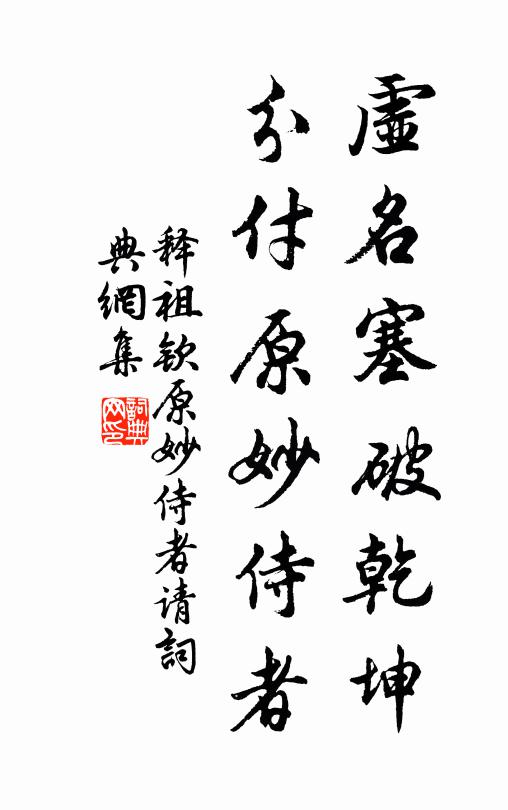 虛名塞破乾坤
分付原妙侍者
释祖欽原妙侍者请詞
典網集
詞典
网印